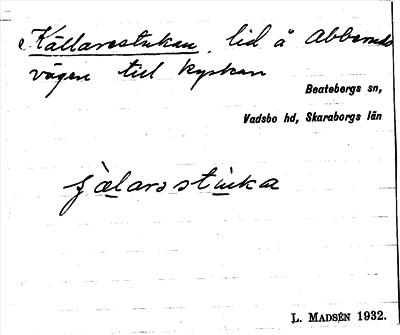 Källarestukan, lid å Abberuds
vägen till kyrkan
Beatebergs sn,
Vadsbo hd, Skaraborgs län
L. MADSÉN 1932.